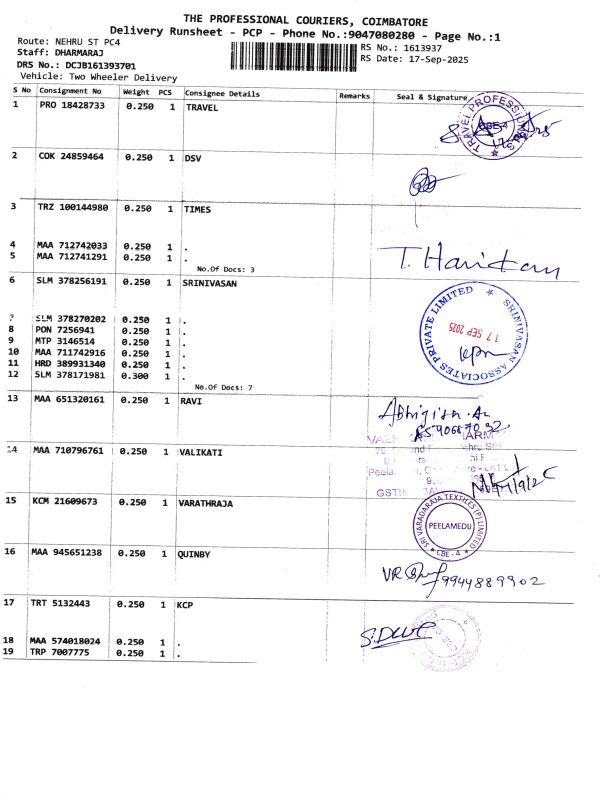 THE PROFESSIONAL COURIERS, COIMBATORE
Delivery Runsheet - PCP - Phone No.:9047080280 - Page No.:1
Route: NEHRU ST PC4
Staff: DHARMARAJ
DRS No.: DCJB161393701
Vehicle: Two Wheeler Delivery
RS No.: 1613937
RS Date: 17-Sep-2025
S No Consignment No Weight PCS Consignee Details Remarks Seal & Signature
1 PRO 18428733 0.250 1 TRAVEL
TRAVEL PROFESSIONALS CBE-4
2 COK 24859464 0.250 1 DSV
3 TRZ 100144980 0.250 1 TIMES
4 MAA 712742033 0.250 1 .
5 MAA 712741291 0.250 1 .
No.Of Docs: 3
T. Haridan
6 SLM 378256191 0.250 1 SRINIVASAN
SRINIVASAN ASSOCIATES PRIVATE LIMITED
17 SEP 2025
7 SLM 378270202 0.250 1 .
8 PON 7256941 0.250 1 .
9 MTP 3146514 0.250 1 .
10 MAA 711742916 0.250 1 .
11 HRD 389931340 0.250 1 .
12 SLM 378171981 0.300 1 .
No.Of Docs: 7
13 MAA 651320161 0.250 1 RAVI
14 MAA 710796761 0.250 1 VALIKATI
GSTIN
15 KCM 21609673 0.250 1 VARATHRAJA
SRI VARADARAJA TEXTILES (P) LIMITED
PEELAMEDU
CBE - 4
16 MAA 945651238 0.250 1 QUINBY
9944889902
17 TRT 5132443 0.250 1 KCP
18 MAA 574018024 0.250 1 .
19 TRP 7007775 0.250 1 .